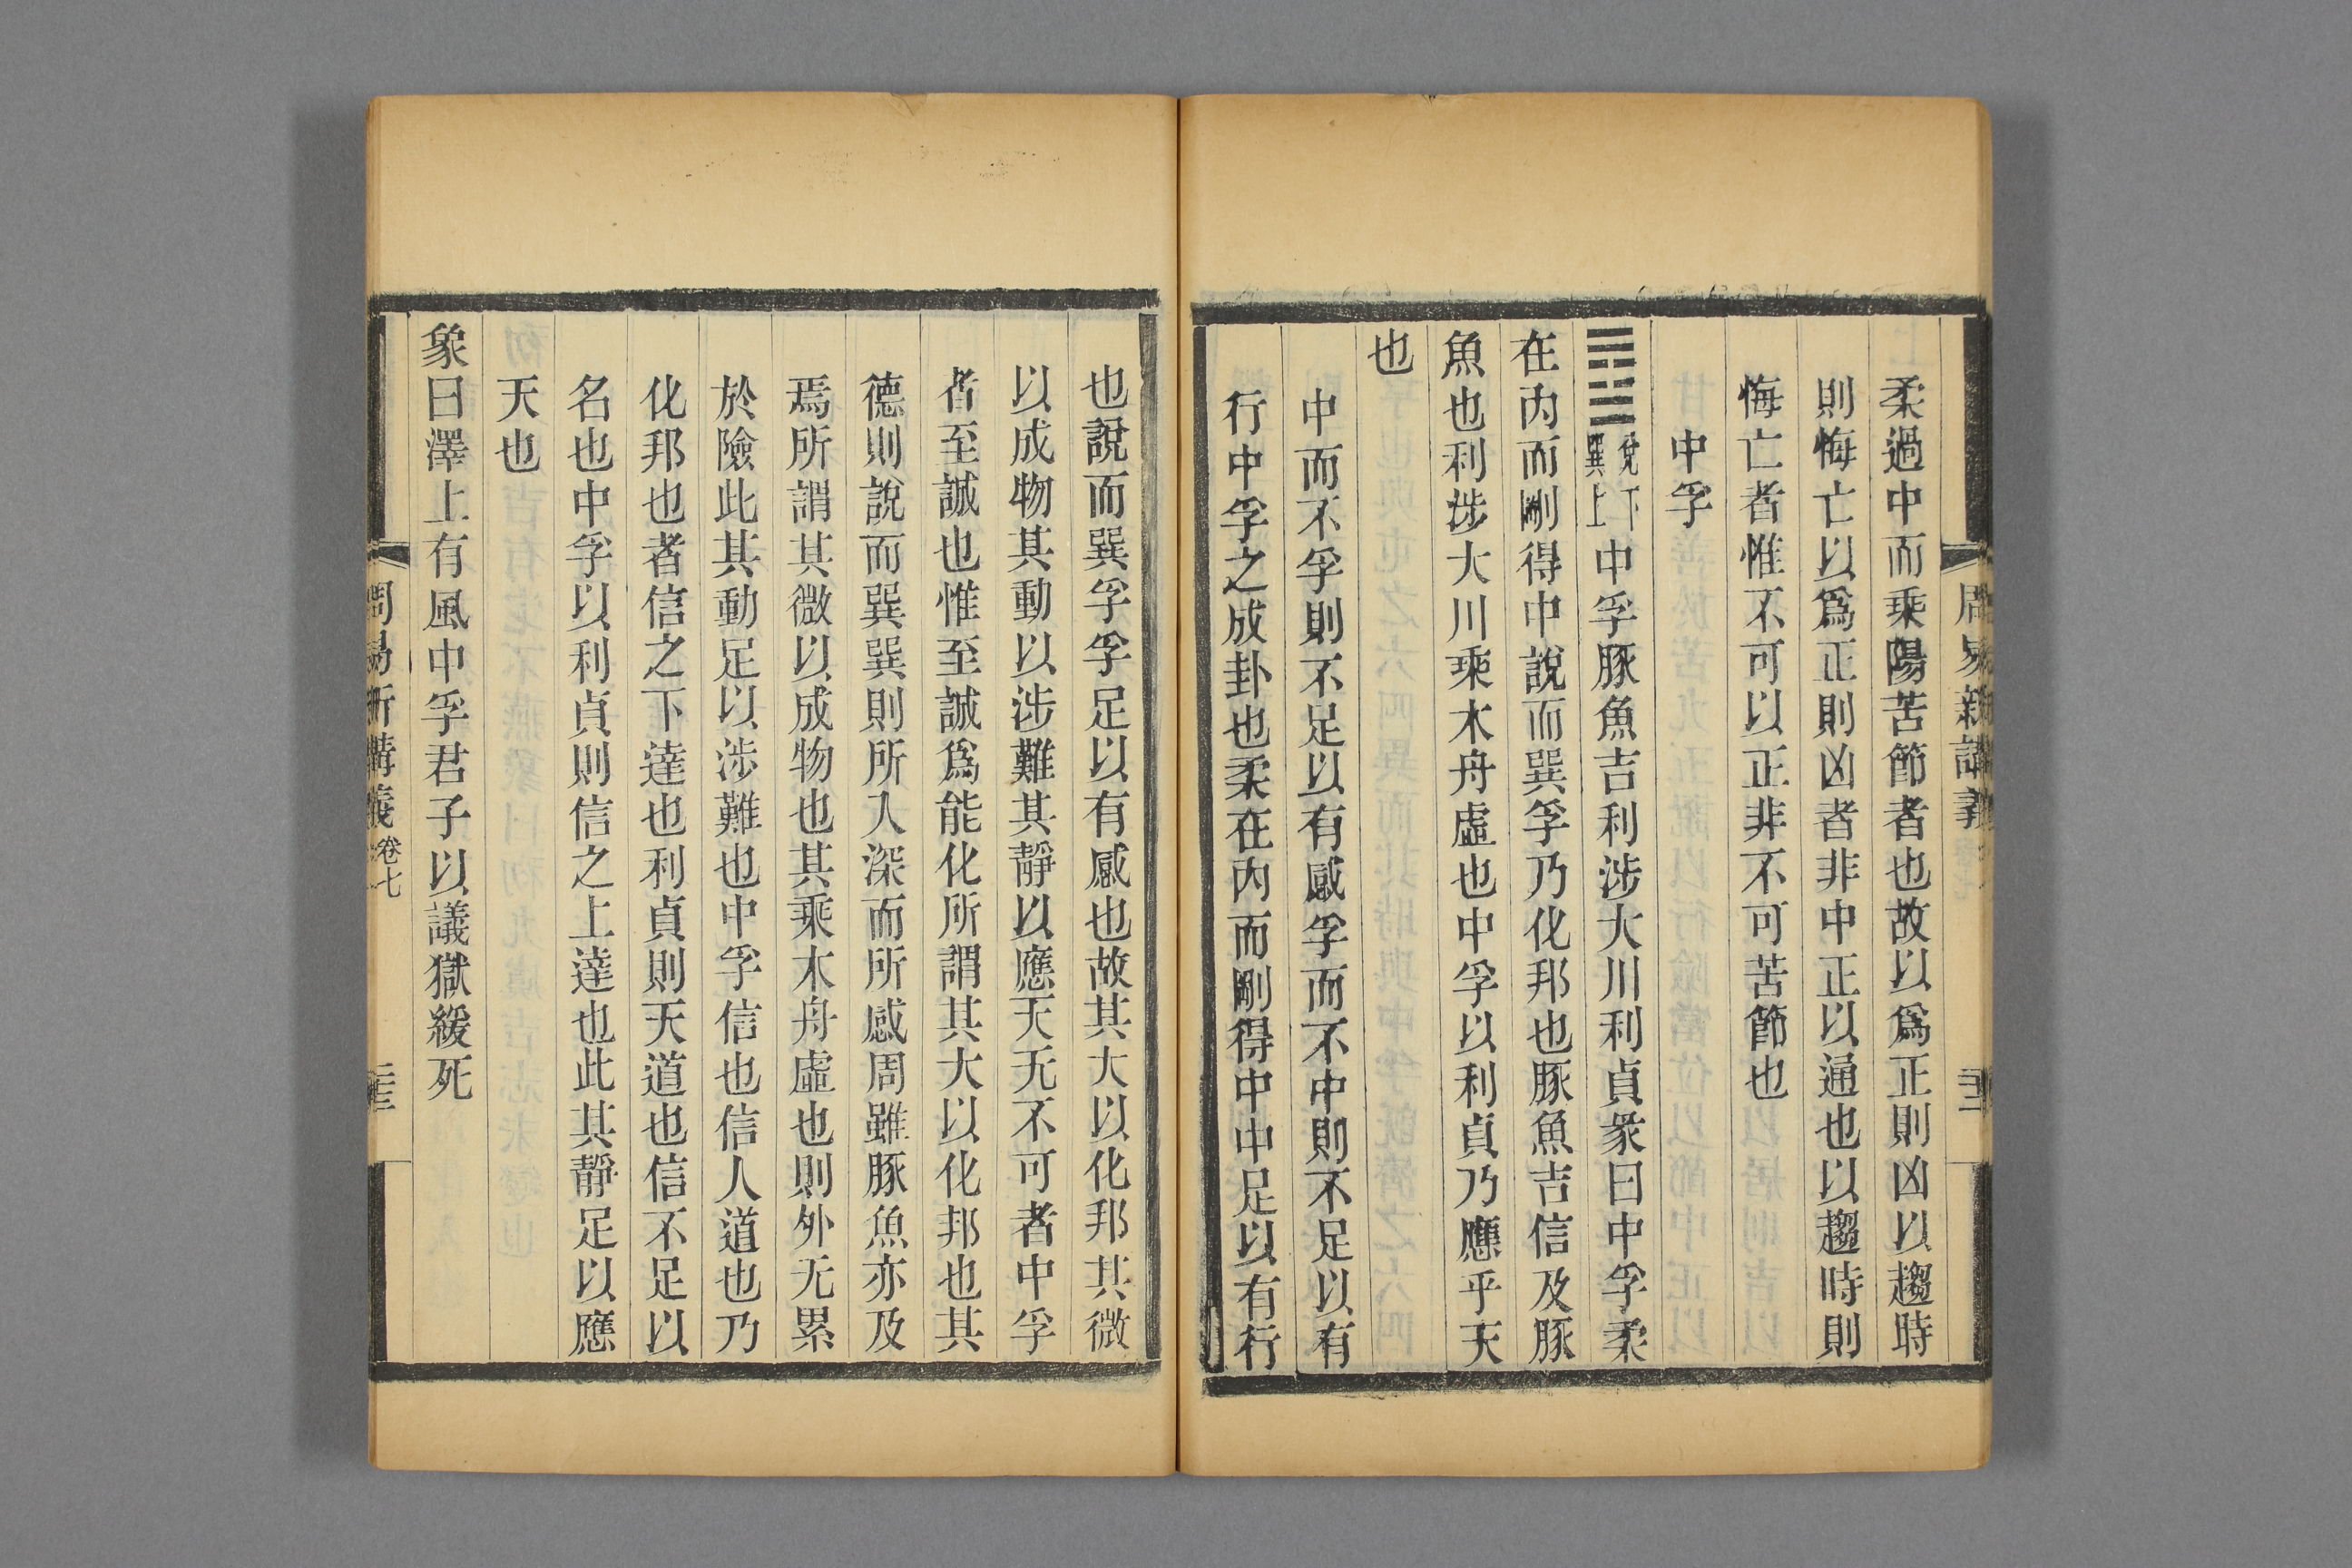 柔過中而乘陽苦節者也故以爲正則凶以趨時
則悔亡以爲正則凶者非中正以通也以趨時則
悔亡者惟不可以正非不可苦節也
中孚
兌下巽上中孚豚魚吉利涉大川利貞彖曰中孚柔
在內而剛得中說而巽孚乃化邦也豚魚吉信及豚
魚也利涉大川乘木舟虛也中孚以利貞乃應乎天
也
中而不孚則不足以有感孚而不中則不足以有
行中孚之成卦也柔在內而剛得中中足以有行
也說而巽孚孚足以有感也故其大以化邦其微
以成物其動以涉難其靜以應天无不可者中孚
者至誠也惟至誠爲能化所謂其大以化邦也其
德則說而巽巽則所入深而所感周雖豚魚亦及
焉所謂其微以成物也其乘木舟虛也則外无累
於險此其動足以涉難也中孚信也信人道也乃
化邦也者信之下達也利貞則天道也信不足以
名也中孚以利貞則信之上達也此其靜足以應
天也
象曰澤上有風中孚君子以議獄緩死
周易新講義 卷七 三十三